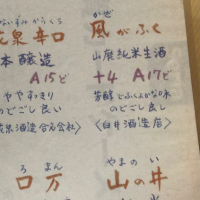 ないずみ からくち
花泉 辛口
本醸造
A15ど
ややすっきり
のどごし良い
〈花泉酒造合名会社〉
かぜ
風がふく
山廃純米生酒
+4 A17ど
芳醇でふくよかな味
のどごし良し
〈白井酒造店〉
ろ まん
ロ万
やまの い
山の井